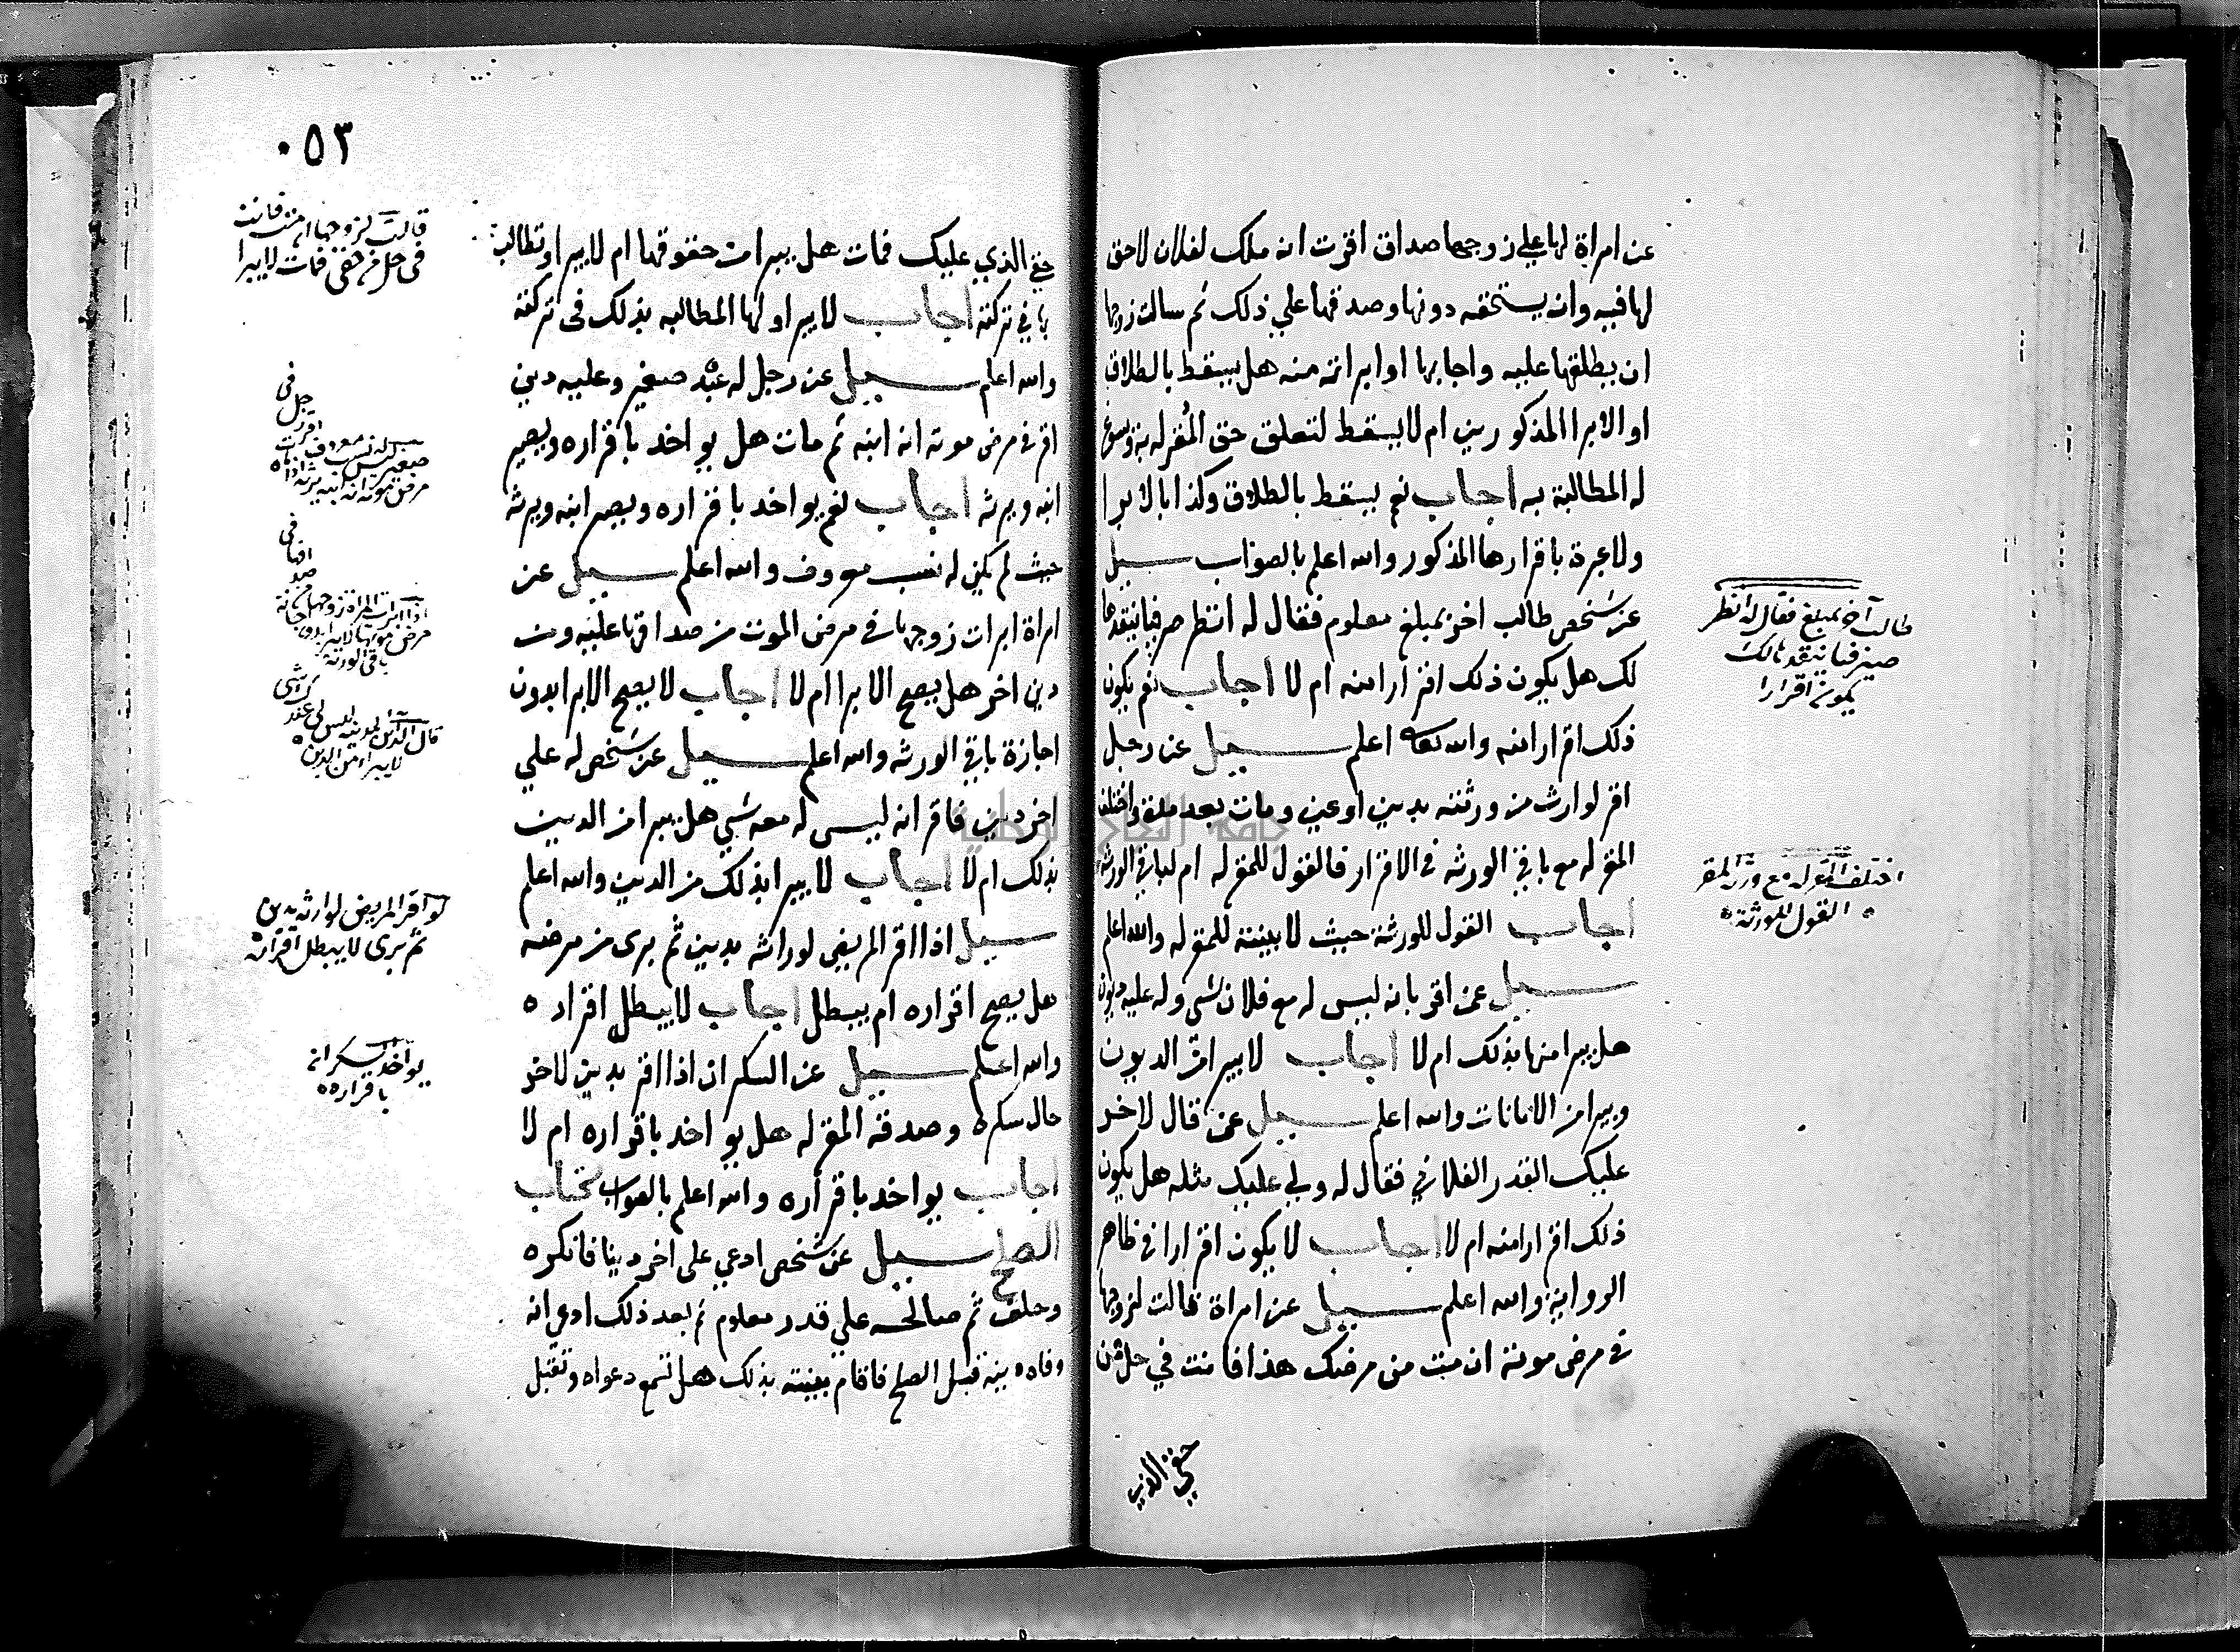 عن امراة لها علي زوجها صداق اقرت انه ملك لفلان لاحق
لها فيه وانه يستحقه دونها وصدقها علي ذلك ثم سالت زوجها
ان يطلقها عليه واجابها او ابراته منه هل يسقط بالطلاق
او الابرا المذكورين ام لا يسقط لتعلق حق المقر له به ويسوغ
له المطالبة به اجاب نعم يسقط بالطلاق وكذا بالابرا
ولا عبرة باقرارها المذكور والله اعلم بالصواب سيل
عن شخص طالب اخر بمبلغ معلوم فقال له انتظر صرفيا ينقدها
لك هل يكون ذلك اقرارا منه ام لا اجاب نعم يكون
ذلك اقرارا منه والله تعالى اعلم سيل عن رجل
اقر لوارث من ورثته بدين او عين ومات بعد مدة واختلف
المقر له مع باقي الورثه في الاقرار فالقول للمقر له ام لباقي الورثه
اجاب القول للورثة حيث لا بينة للمقر له والله اعلم
سيل عمن اقر بانه ليس له مع فلان شي وله عليه ديون
هل يبرا منها بذلك ام لا اجاب لا يبرا من الديون
ويبرا من الامانات والله اعلم سيل عمن قال لاخر
عليك القدر الفلاني فقال له ولي عليك مثله هل يكون
ذلك اقرارا منه ام لا اجاب لا يكون اقرارا في ظاهر
الرواية والله اعلم سيل عن امراة قالت لزوجها
في مرض موته ان مت من مرضك هذا فانت في حل من
حقي الذي
طالب آخر بمبلغ فقال له انتظر
صيرفيا ينقد مالك
يكون اقرارا
اختلف المقر له مع ورثة المقر
القول للورثة
٠٥٣
حقي الذي عليك فمات هل يبرا من حقوقها ام لا يبرا وتطالب
بها في تركته اجاب لا يبرا ولها المطالبه بذلك في تركته
والله اعلم سيل عن رجل له عبد صغير وعليه دين
اقر في مرض موته انه ابنه ثم مات هل يواخد باقراره ويصير
ابنه ويرثه اجاب نعم يواخد باقراره ويصير ابنه ويرثه
حيث لم يكن له نسب معروف والله اعلم سيل عن
امراة ابرات زوجها في مرض الموت من صداقها عليه ومن
دين اخر هل يصح الابرا ام لا اجاب لا يصح الابرا بدون
اجازة باقي الورثه والله اعلم سيل عن شخص له علي
اخر دين فاقر انه ليس له معه شي هل يبرا من الدين
بذلك ام لا اجاب لا يبرا بذلك من الدين والله اعلم
سيل اذا اقر المريض لوارثه بدين ثم برى من مرضه
هل يصح اقراره ام يبطل اجاب لا يبطل اقراره
والله اعلم سيل عن السكران اذا اقر بدين لاخر
حال سكره وصدقه المقر له هل يواخد باقراره ام لا
اجاب يواخد باقراره والله اعلم بالصواب كتاب
الصلح سيل عن شخص ادعي على اخر دينا فانكره
وحلف ثم صالحه علي قدر معلوم ثم بعد ذلك ادعي انه
وفاه دينه قبل الصلح فاقام بينته بذلك هل تسمع دعواه وتقبل
قالت لزوجها ان مت فانت
في حل من حقي فمات لا يبرا
مرض موته انه ابنه يرثه
اذا ابرات المراة زوجها من
باقي الورثه
لا يبراء من الدين
لو اقر المريض لوارثه بدين
ثم برى لا يبطل اقراره
يواخد السكران
باقراره
جامعة النجاح الوطنية